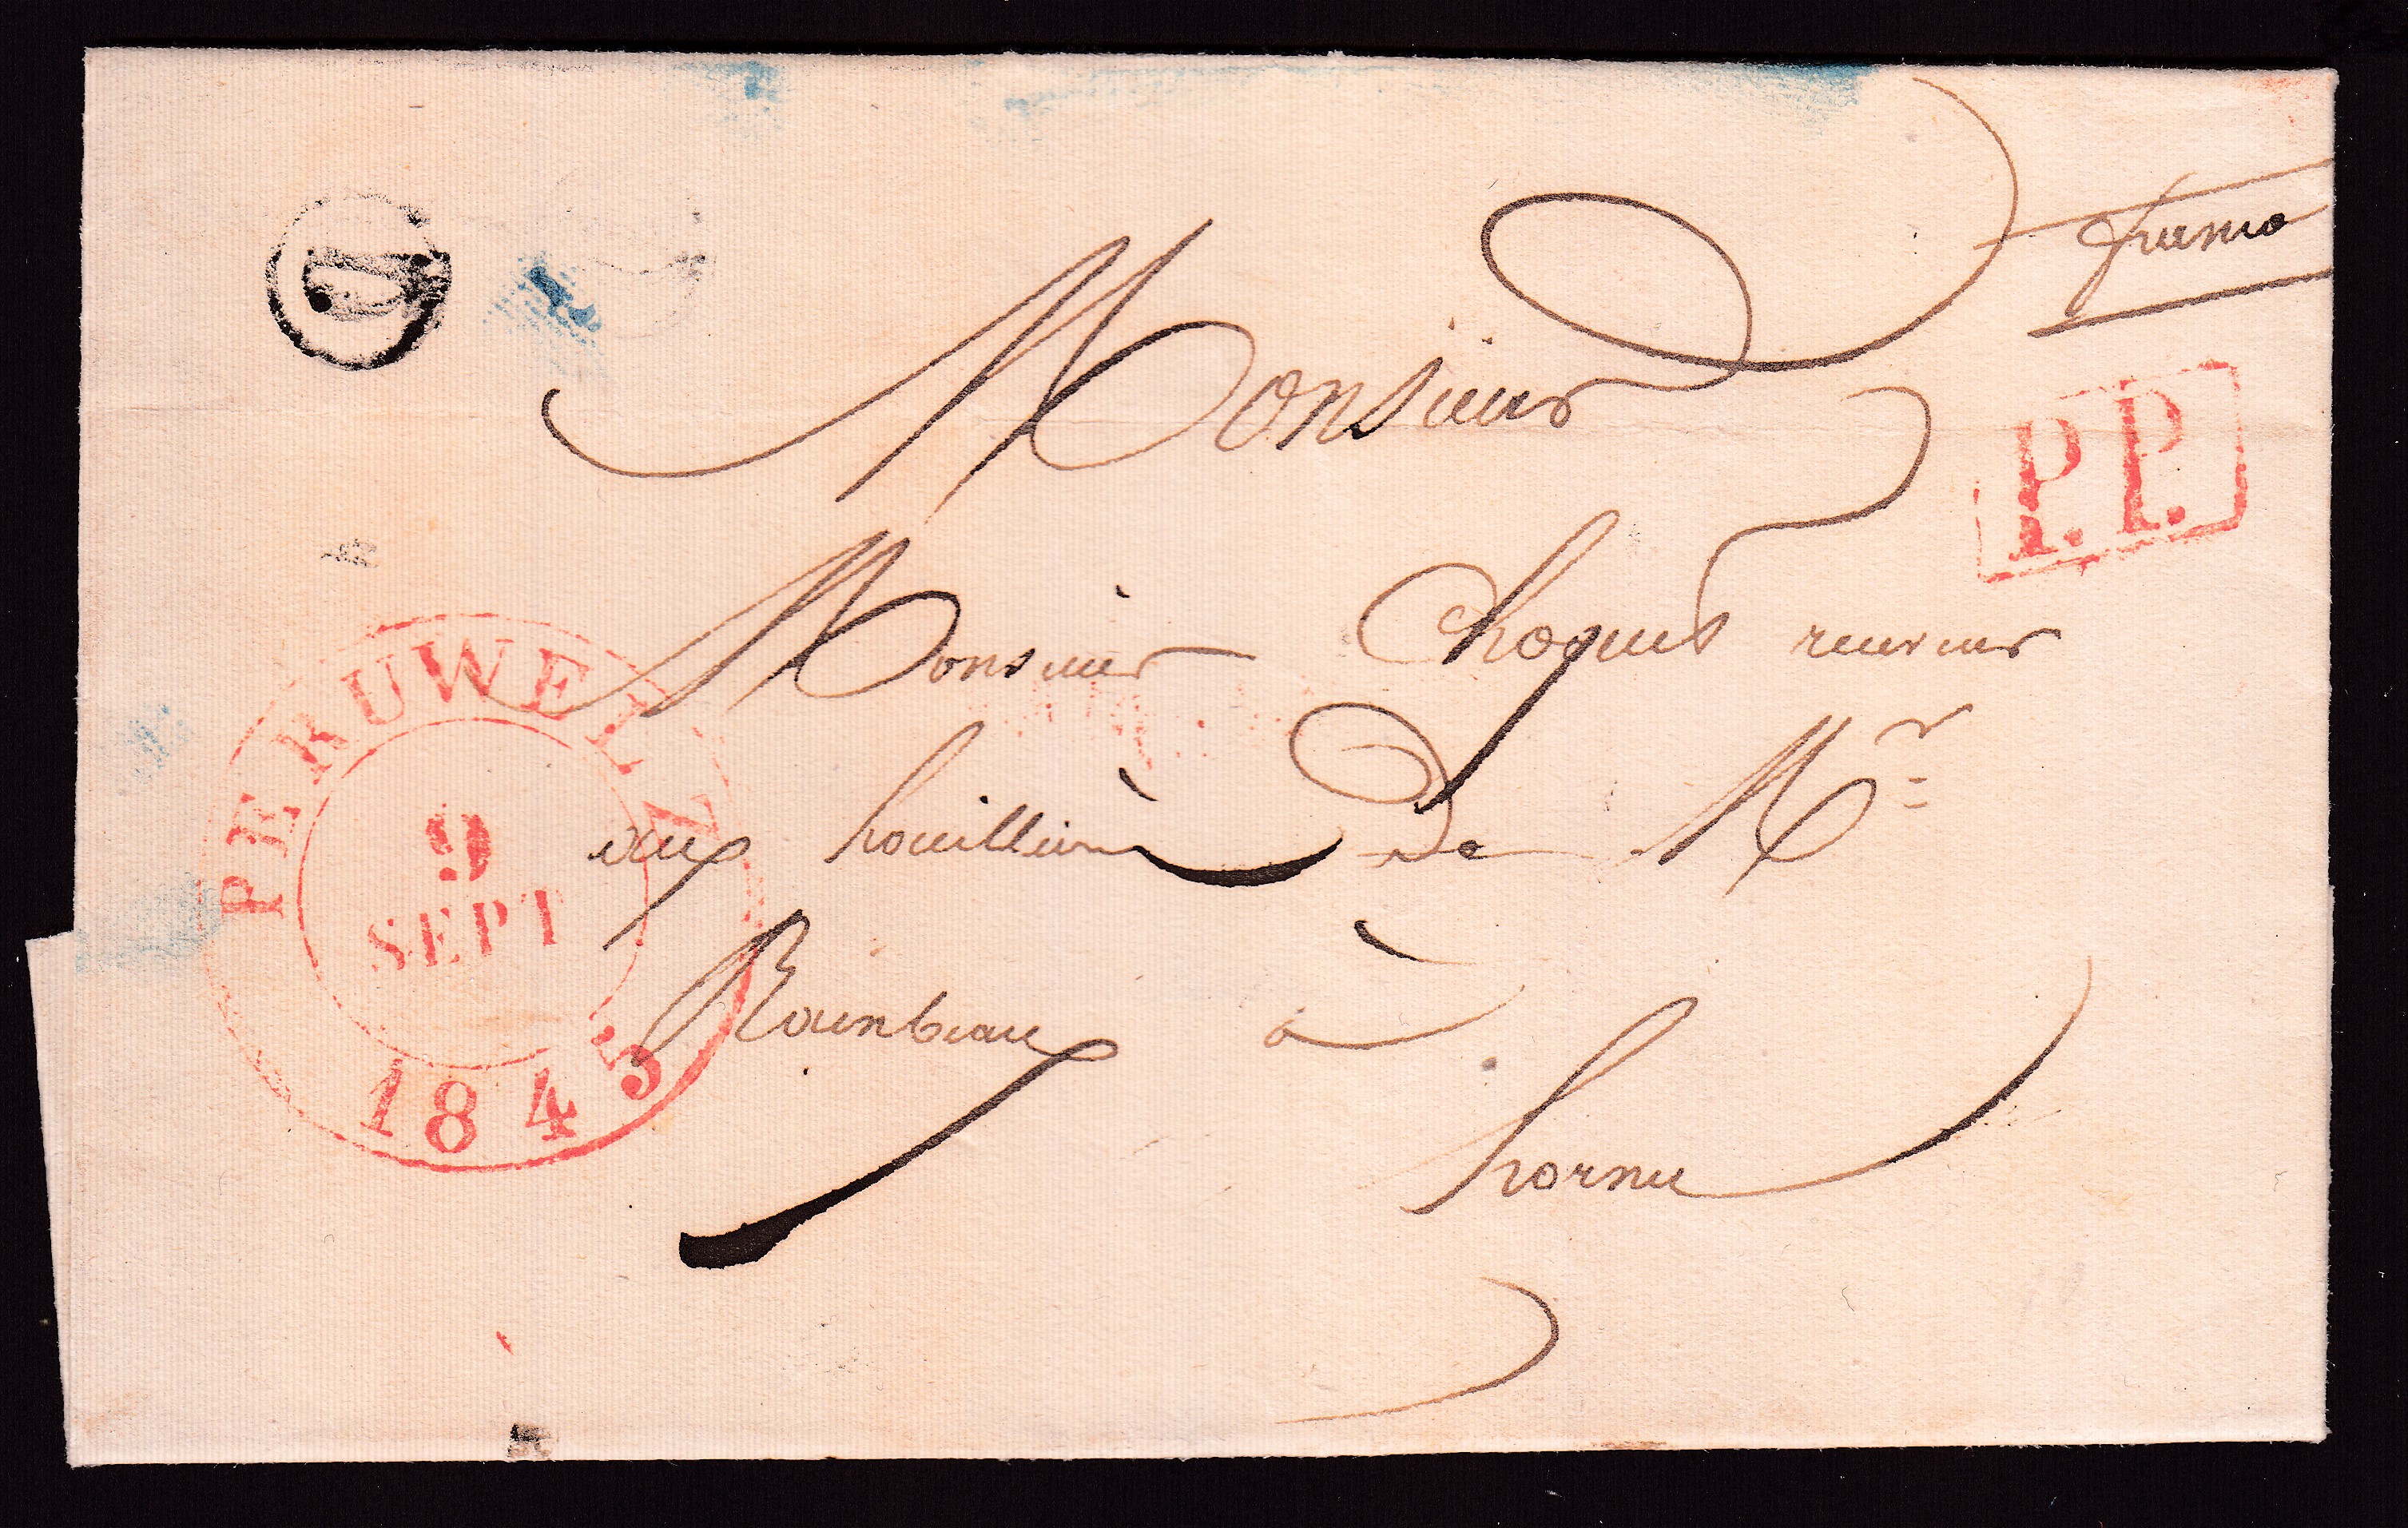 franco
P.P.
Monsieur
Monsieur Choquet receveur
aux houillière de Mr
Rainbeaux à
hornu
PERUWELZ
9
SEPT
1845